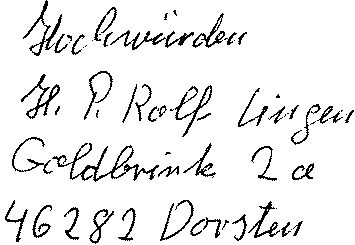 Hochwürden
H. P. Rolf Lingen
Goldbrink 2a
46282 Dorsten